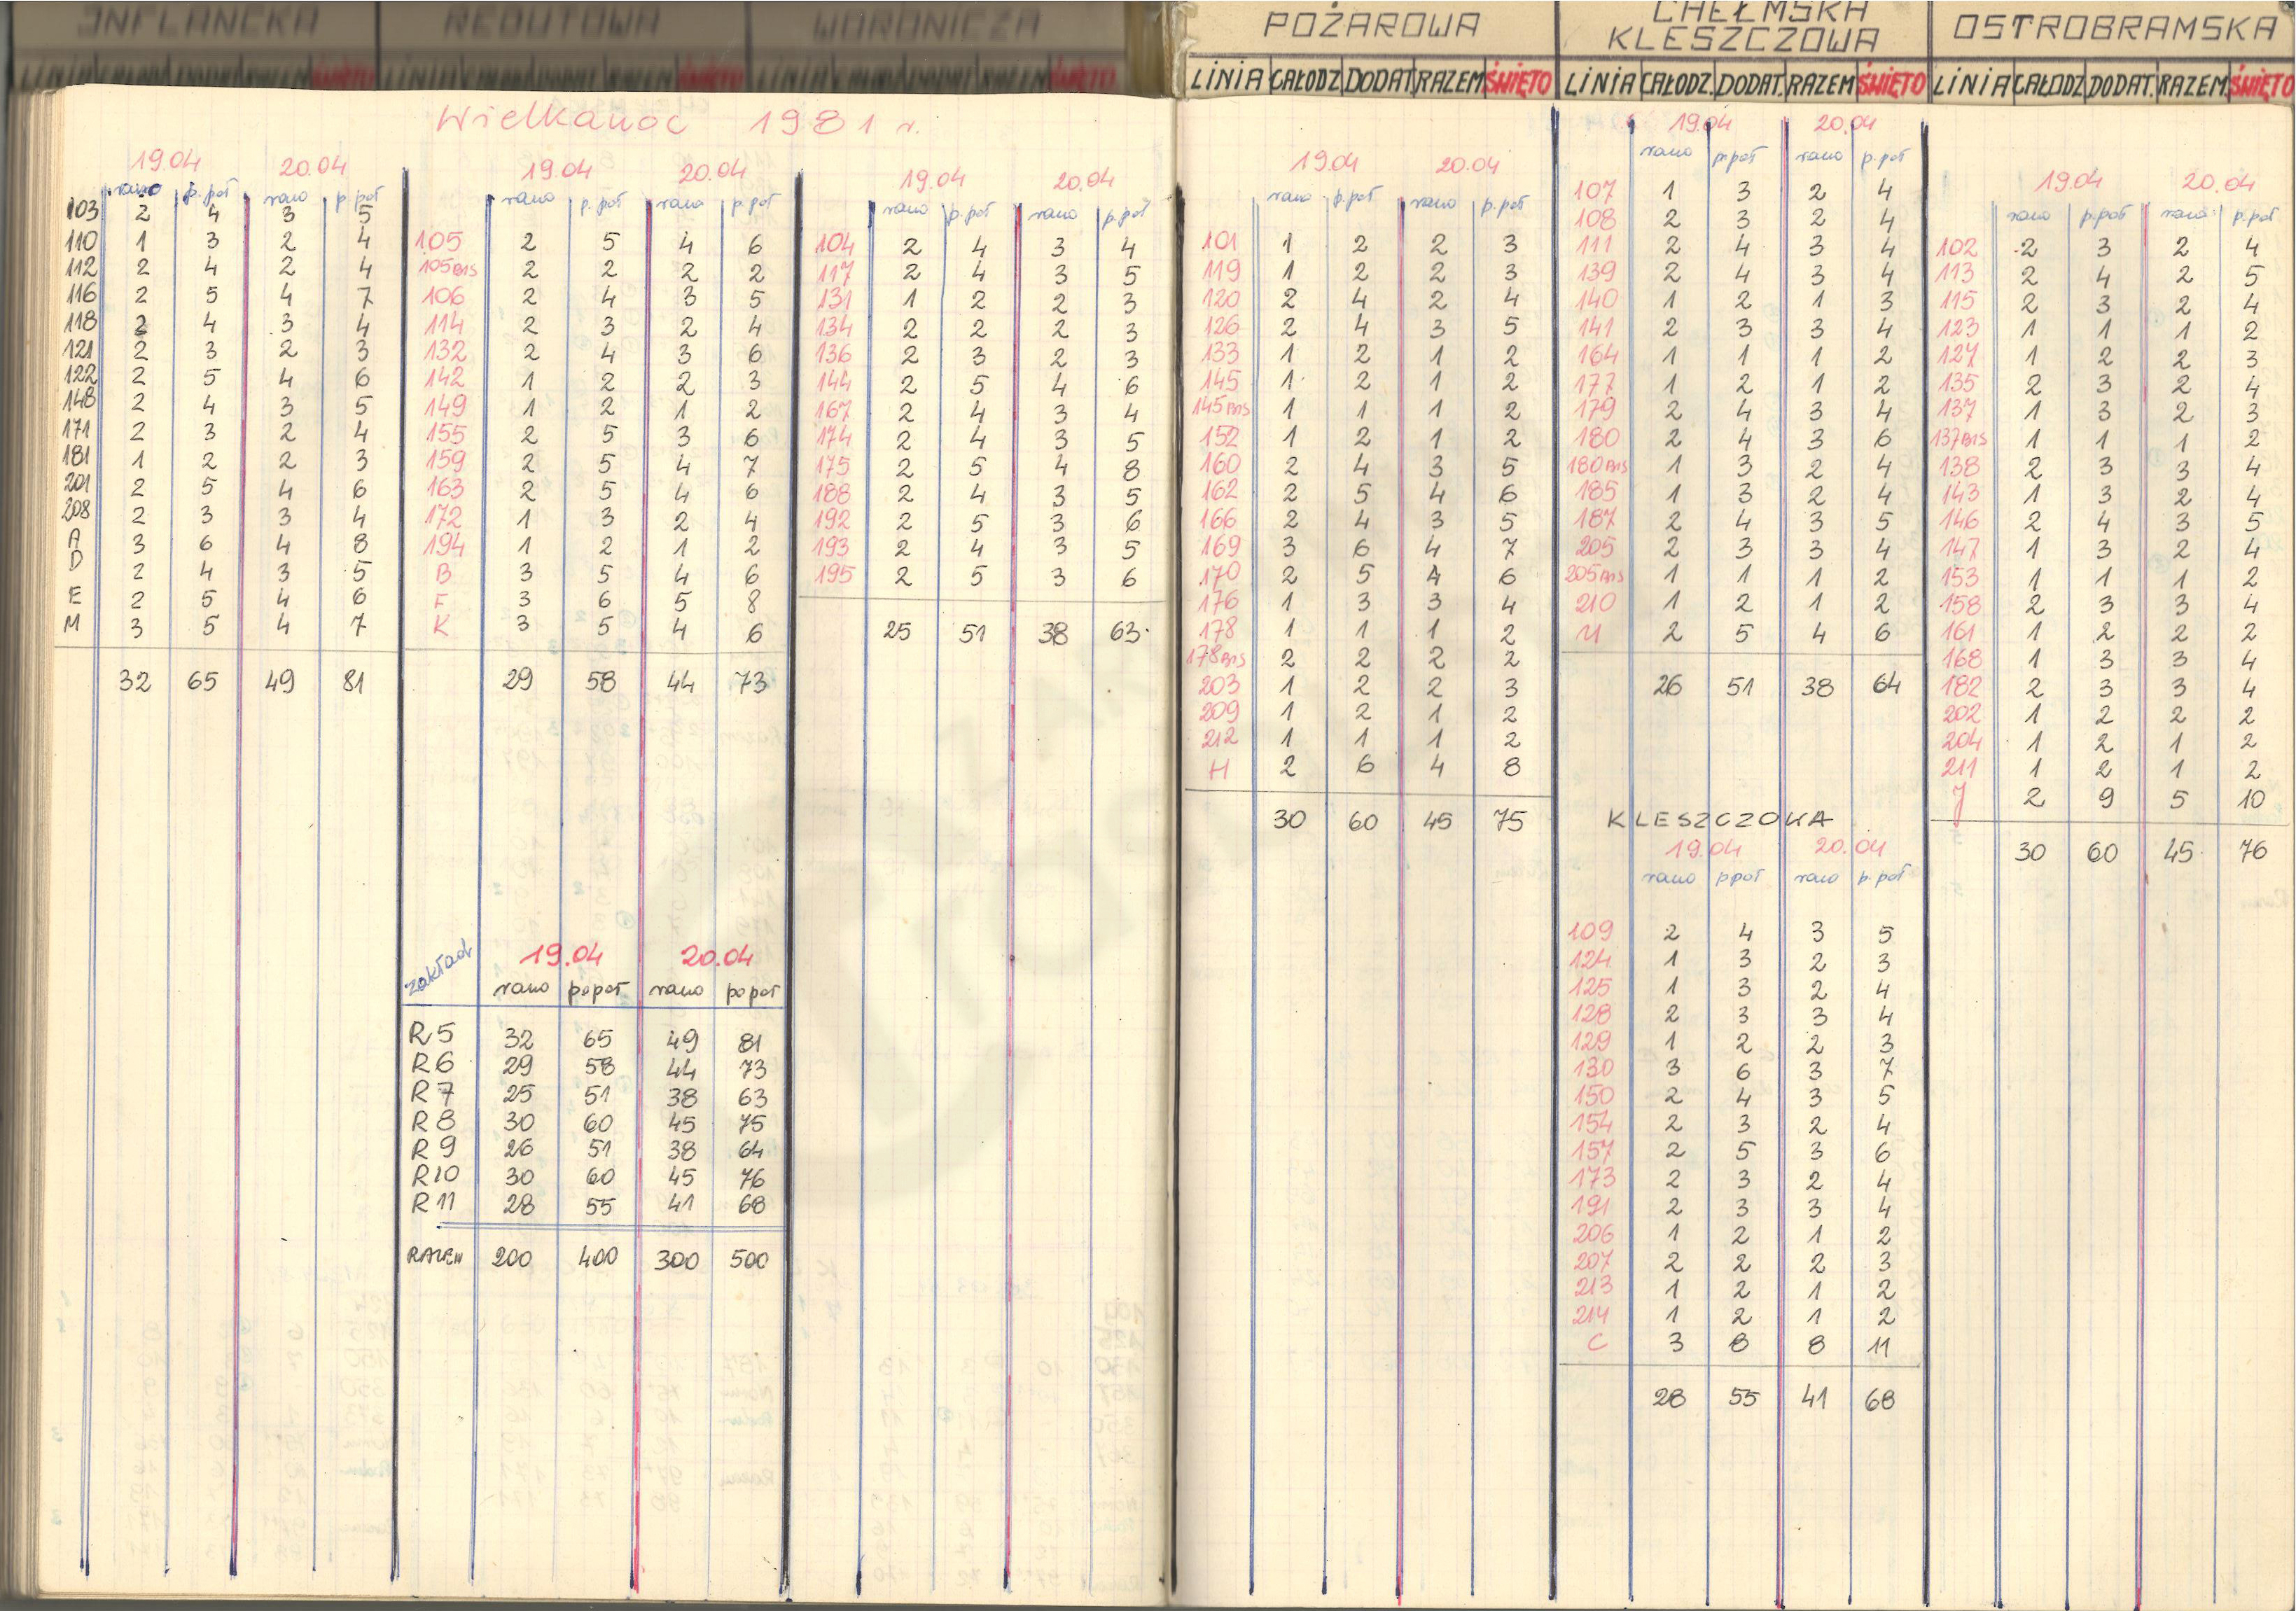 INFLANCKA
REDUTOWA
WORONICZA
POŻAROWA
CHEŁMSKA
KLESZCZOWA
OSTROBRAMSKA
LINIA CAŁODZ DODAT RAZEM ŚWIĘTO
LINIA CAŁODZ. DODAT. RAZEM ŚWIĘTO
LINIA CAŁODZ DODAT. RAZEM. ŚWIĘTO
Wielkanoc 1981 r.
19.04 20.04
rano p.poł rano p.poł
103 2 4 3 5
110 1 3 2 4
112 2 4 2 4
116 2 5 4 7
118 2 4 3 4
121 2 3 2 3
122 2 5 4 6
148 2 4 3 5
171 2 3 2 4
181 1 2 2 3
201 2 5 4 6
208 2 3 3 4
A 3 6 4 8
D 2 4 3 5
E 2 5 4 6
M 3 5 4 7
32 65 49 81
19.04 20.04
rano p.poł rano p.poł
105 2 5 4 6
105 BIS 2 2 2 2
106 2 4 3 5
114 2 3 2 4
132 2 4 3 6
142 1 2 2 3
149 1 2 1 2
155 2 5 3 6
159 2 5 4 7
163 2 5 4 6
172 1 3 2 4
194 1 2 1 2
B 3 5 4 6
F 3 6 5 8
K 3 5 4 6
29 58 44 73
zakład 19.04 20.04
rano popoł rano popoł
R5 32 65 49 81
R6 29 58 44 73
R7 25 51 38 63
R8 30 60 45 75
R9 26 51 38 64
R10 30 60 45 76
R11 28 55 41 68
RAZEM 200 400 300 500
19.04 20.04
rano p.poł rano p.poł
104 2 4 3 4
117 2 4 3 5
131 1 2 2 3
134 2 2 2 3
136 2 3 2 3
144 2 5 4 6
167 2 4 3 4
174 2 4 3 5
175 2 5 4 8
188 2 4 3 5
192 2 5 3 6
193 2 4 3 5
195 2 5 3 6
25 51 38 63
19.04 20.04
rano p.poł rano p.poł
101 1 2 2 3
119 1 2 2 3
120 2 4 2 4
126 2 4 3 5
133 1 2 1 2
145 1 2 1 2
145 BIS 1 1 1 2
152 1 2 1 2
160 2 4 3 5
162 2 5 4 6
166 2 4 3 5
169 3 6 4 7
170 2 5 4 6
176 1 3 3 4
178 1 1 1 2
178 BIS 2 2 2 2
203 1 2 2 3
209 1 2 1 2
212 1 1 1 2
H 2 6 4 8
30 60 45 75
19.04 20.04
rano p.poł rano p.poł
107 1 3 2 4
108 2 3 2 4
111 2 4 3 4
139 2 4 3 4
140 1 2 1 3
141 2 3 3 4
164 1 1 1 2
177 1 2 1 2
179 2 4 3 4
180 2 4 3 6
180 BIS 1 3 2 4
185 1 3 2 4
187 2 4 3 5
205 2 3 3 4
205 BIS 1 1 1 2
210 1 2 1 2
U 2 5 4 6
26 51 38 64
KLESZCZOWA
19.04 20.04
rano ppoł rano p.poł
109 2 4 3 5
124 1 3 2 3
125 1 3 2 4
128 2 3 3 4
129 1 2 2 3
130 3 6 3 7
150 2 4 3 5
154 2 3 2 4
157 2 5 3 6
173 2 3 2 4
191 2 3 3 4
206 1 2 1 2
207 2 2 2 3
213 1 2 1 2
214 1 2 1 2
C 3 8 8 11
28 55 41 68
19.04 20.04
rano p.poł rano p.poł
102 2 3 2 4
113 2 4 2 5
115 2 3 2 4
123 1 1 1 2
127 1 2 2 3
135 2 3 2 4
137 1 3 2 3
137 BIS 1 1 1 2
138 2 3 3 4
143 1 3 2 4
146 2 4 3 5
147 1 3 2 4
153 1 1 1 2
158 2 3 3 4
161 1 2 2 2
168 1 3 3 4
182 2 3 3 4
202 1 2 2 2
204 1 2 1 2
211 1 2 1 2
J 2 9 5 10
30 60 45 76